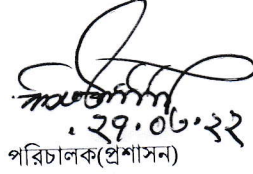 ২৭.০৬.২২
পরিচালক(প্রশাসন)